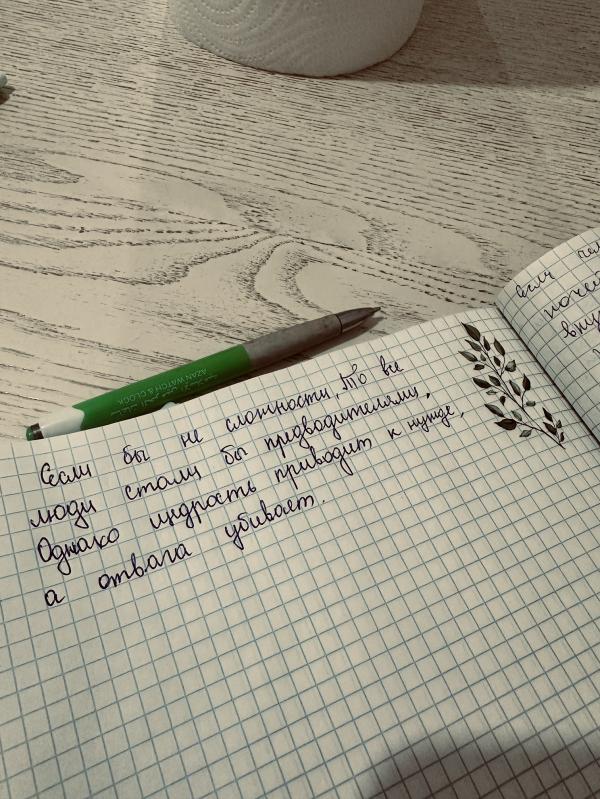 AZAN WATCH & CLOCK
Если бы не сложности, то все
люди стали бы предводителями.
Однако щедрость приводит к нужде,
а отвага убивает.
Если